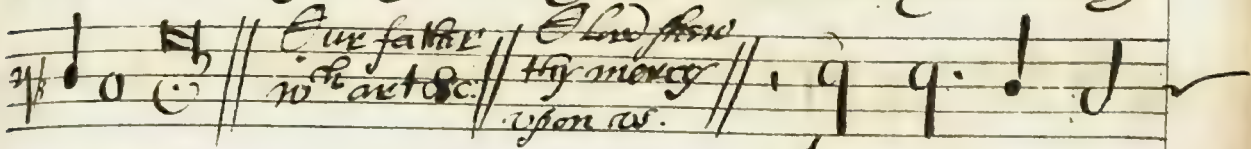 Our father
wch art &c.
O lord shew
thy mercy
vpon vs.